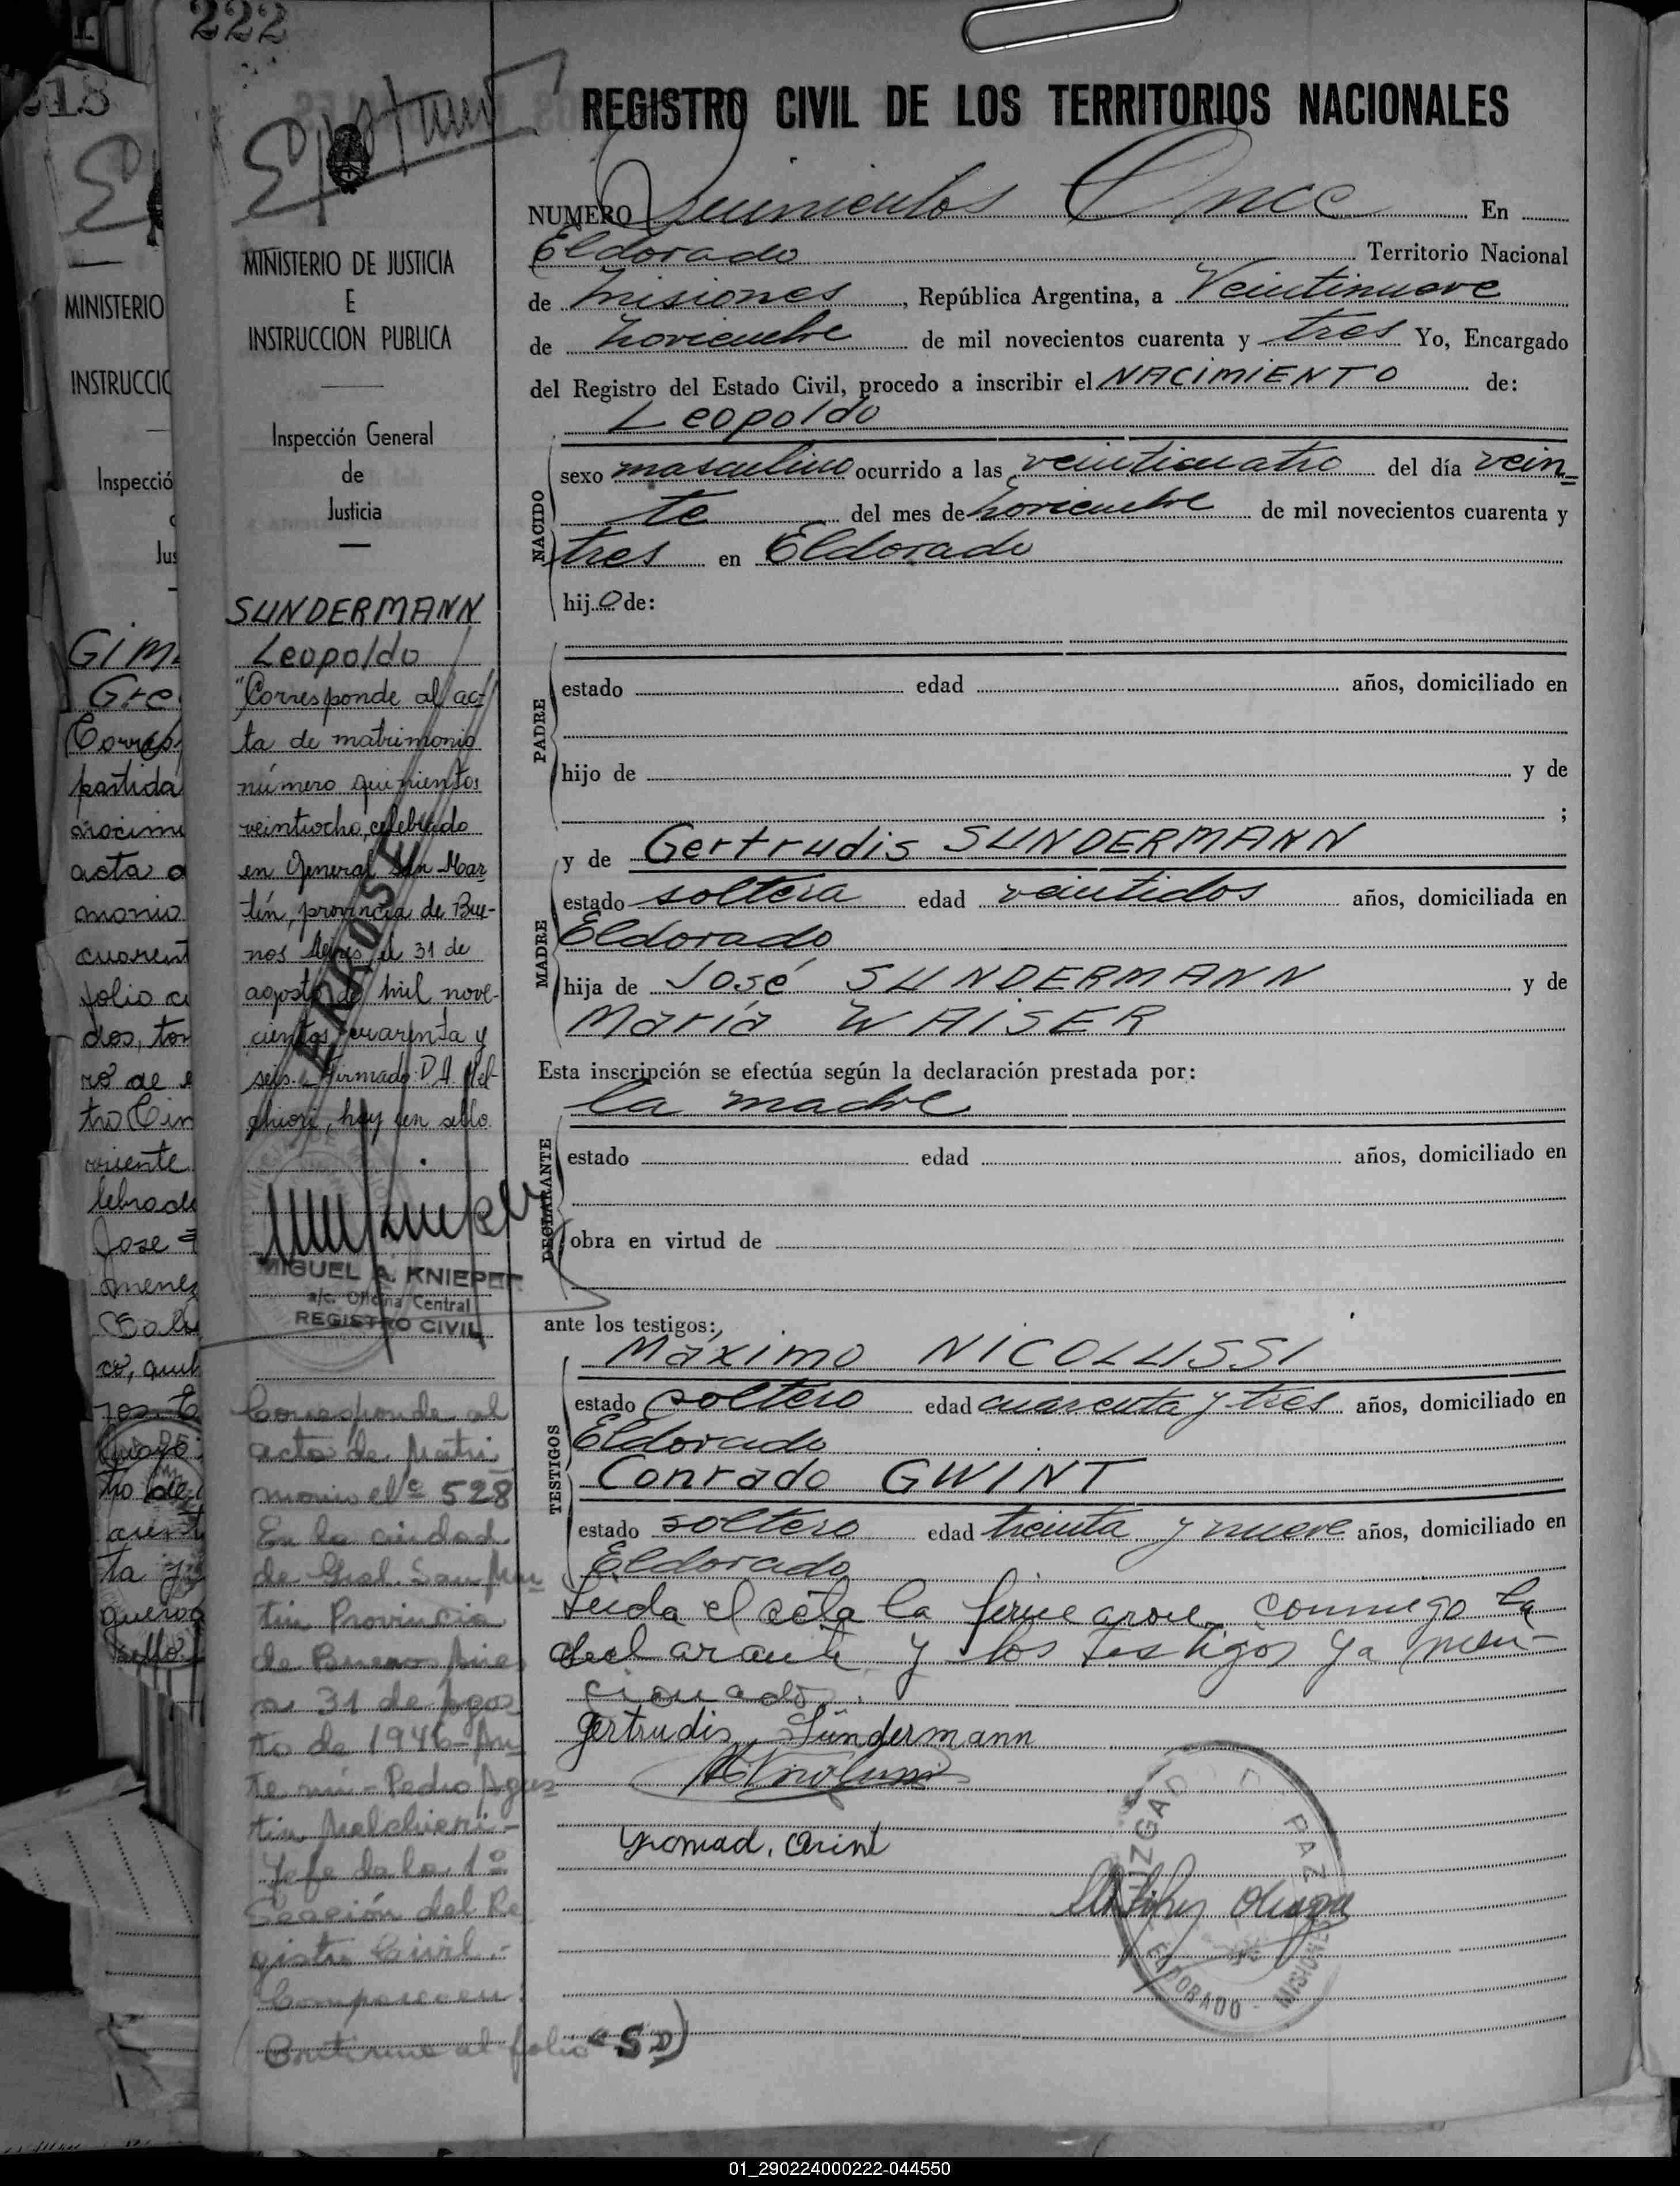 222
218
REGISTRO CIVIL DE LOS TERRITORIOS NACIONALES
NUMERO Quinientos Once En
Eldorado Territorio Nacional
de Misiones, República Argentina, a Veintinueve
de noviembre de mil novecientos cuarenta y tres Yo, Encargado
del Registro del Estado Civil, procedo a inscribir el NACIMIENTO de:
Leopoldo
NACIDO
sexo masculino ocurrido a las veinticuatro del día vein-
te del mes de noviembre de mil novecientos cuarenta y
tres en Eldorado
hijo de:
PADRE
estado edad años, domiciliado en
hijo de y de
;
y de Gertrudis SUNDERMANN
MADRE
estado soltera edad veintidos años, domiciliada en
Eldorado
hija de José SUNDERMANN y de
María WAISER
Esta inscripción se efectúa según la declaración prestada por:
la madre
DECLARANTE
estado edad años, domiciliado en
obra en virtud de
ante los testigos:
Máximo NICOLUSSI
TESTIGOS
estado soltero edad cuarenta y tres años, domiciliado en
Eldorado
Conrado GWINT
estado soltero edad treinta y nueve años, domiciliado en
Eldorado
Leida el acta la firmaron conmigo la
declarante y los testigos ya men-
cionados.
Gertrudis Sündermann
JUZGADO D PAZ
ELDORADO - MISIONES
MINISTERIO DE JUSTICIA
E
INSTRUCCION PUBLICA
Inspección General
de
Justicia
SUNDERMANN
Leopoldo
"Corresponde al ac-
ta de matrimonio
número quinientos
veintiocho, celebrado
en General San Mar-
tín, provincia de Bue-
nos Aires, el 31 de
agosto de mil nove-
cientos cuarenta y
seis. Firmado: P.A. Mel-
chiori, hay un sello.
MIGUEL A. KNIEPER
a/c. Oficina Central
REGISTRO CIVIL
Corresponde al
acta de Matri
monio Nº 528
En la ciudad
de Gral. San Mar
tin Provincia
de Buenos Aires
a 31 de Agos
to de 1946 - An
te mi - Pedro Agus
tin Melchiori -
Jefe de la 1ª
Sección del Re
gistro Civil -
Comparecen:
Continua al folio
MINISTERIO
INSTRUCCIO
Inspecció
Jus
partida
acta
cuarent
01_290224000222-044550